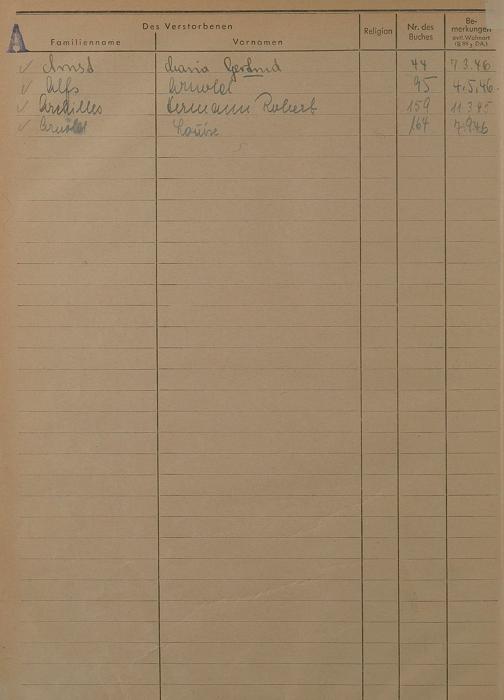 A
Des Verstorbenen
Familienname Vornamen Religion Nr. des Buches Bemerkungen evtl. Wohnort (§ 89 g. DA.)
✓ Arnst Maria Gertrud 44 7.3.46
✓ Alfs Arnold 95 4.5.46.
✓ Hermann Robert 159
✓ Arnold Louise 164 7.9.46